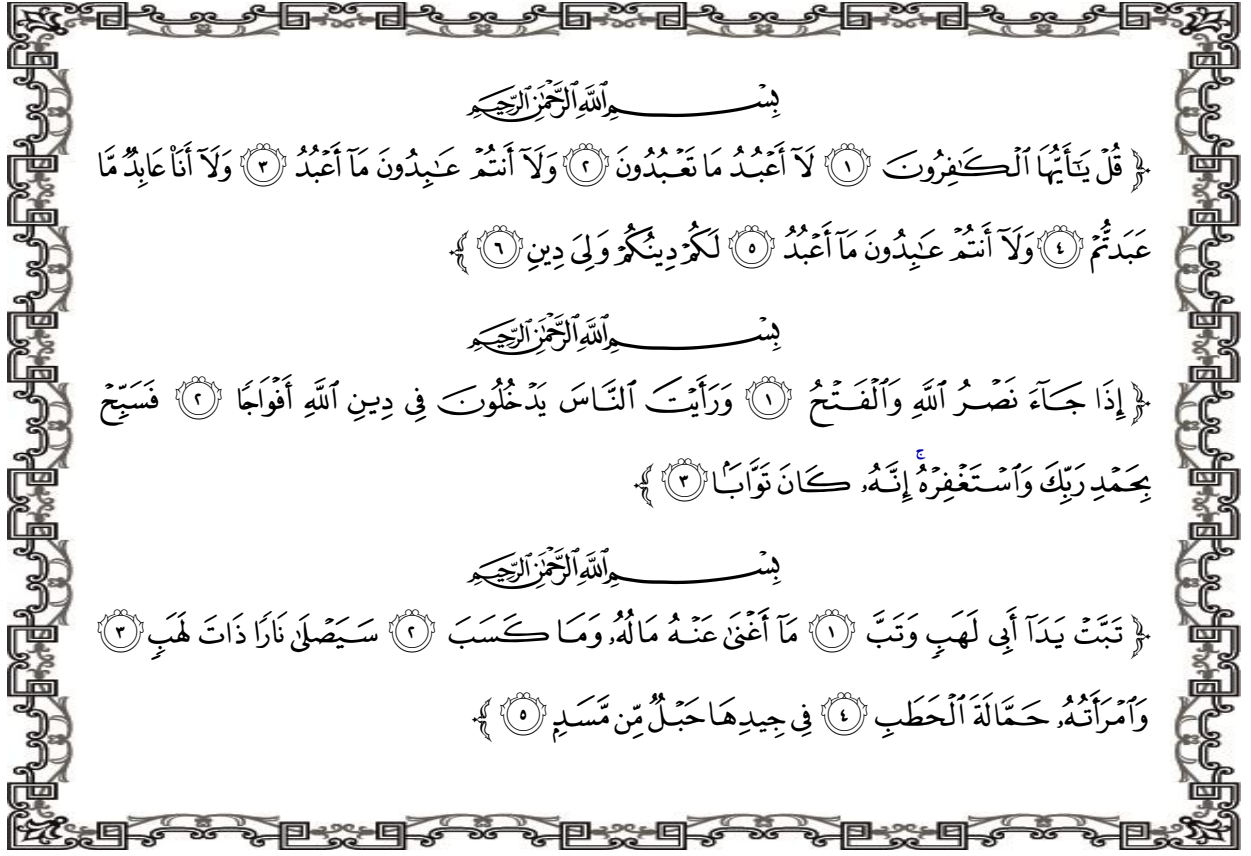 بِسْمِ ٱللَّهِ ٱلرَّحْمَٰنِ ٱلرَّحِيمِ
﴿ قُلْ يَٰٓأَيُّهَا ٱلْكَٰفِرُونَ ١ لَآ أَعْبُدُ مَا تَعْبُدُونَ ٢ وَلَآ أَنتُمْ عَٰبِدُونَ مَآ أَعْبُدُ ٣ وَلَآ أَنَا۠ عَابِدٌ مَّا
عَبَدتُّمْ ٤ وَلَآ أَنتُمْ عَٰبِدُونَ مَآ أَعْبُدُ ٥ لَكُمْ دِينُكُمْ وَلِىَ دِينِ ٦ ﴾
بِسْمِ ٱللَّهِ ٱلرَّحْمَٰنِ ٱلرَّحِيمِ
﴿ إِذَا جَآءَ نَصْرُ ٱللَّهِ وَٱلْفَتْحُ ١ وَرَأَيْتَ ٱلنَّاسَ يَدْخُلُونَ فِى دِينِ ٱللَّهِ أَفْوَاجًا ٢ فَسَبِّحْ
بِحَمْدِ رَبِّكَ وَٱسْتَغْفِرْهُ ۚ إِنَّهُۥ كَانَ تَوَّابًۢا ٣ ﴾
بِسْمِ ٱللَّهِ ٱلرَّحْمَٰنِ ٱلرَّحِيمِ
﴿ تَبَّتْ يَدَآ أَبِى لَهَبٍ وَتَبَّ ١ مَآ أَغْنَىٰ عَنْهُ مَالُهُۥ وَمَا كَسَبَ ٢ سَيَصْلَىٰ نَارًا ذَاتَ لَهَبٍ ٣
وَٱمْرَأَتُهُۥ حَمَّالَةَ ٱلْحَطَبِ ٤ فِى جِيدِهَا حَبْلٌ مِّن مَّسَدٍۭ ٥ ﴾